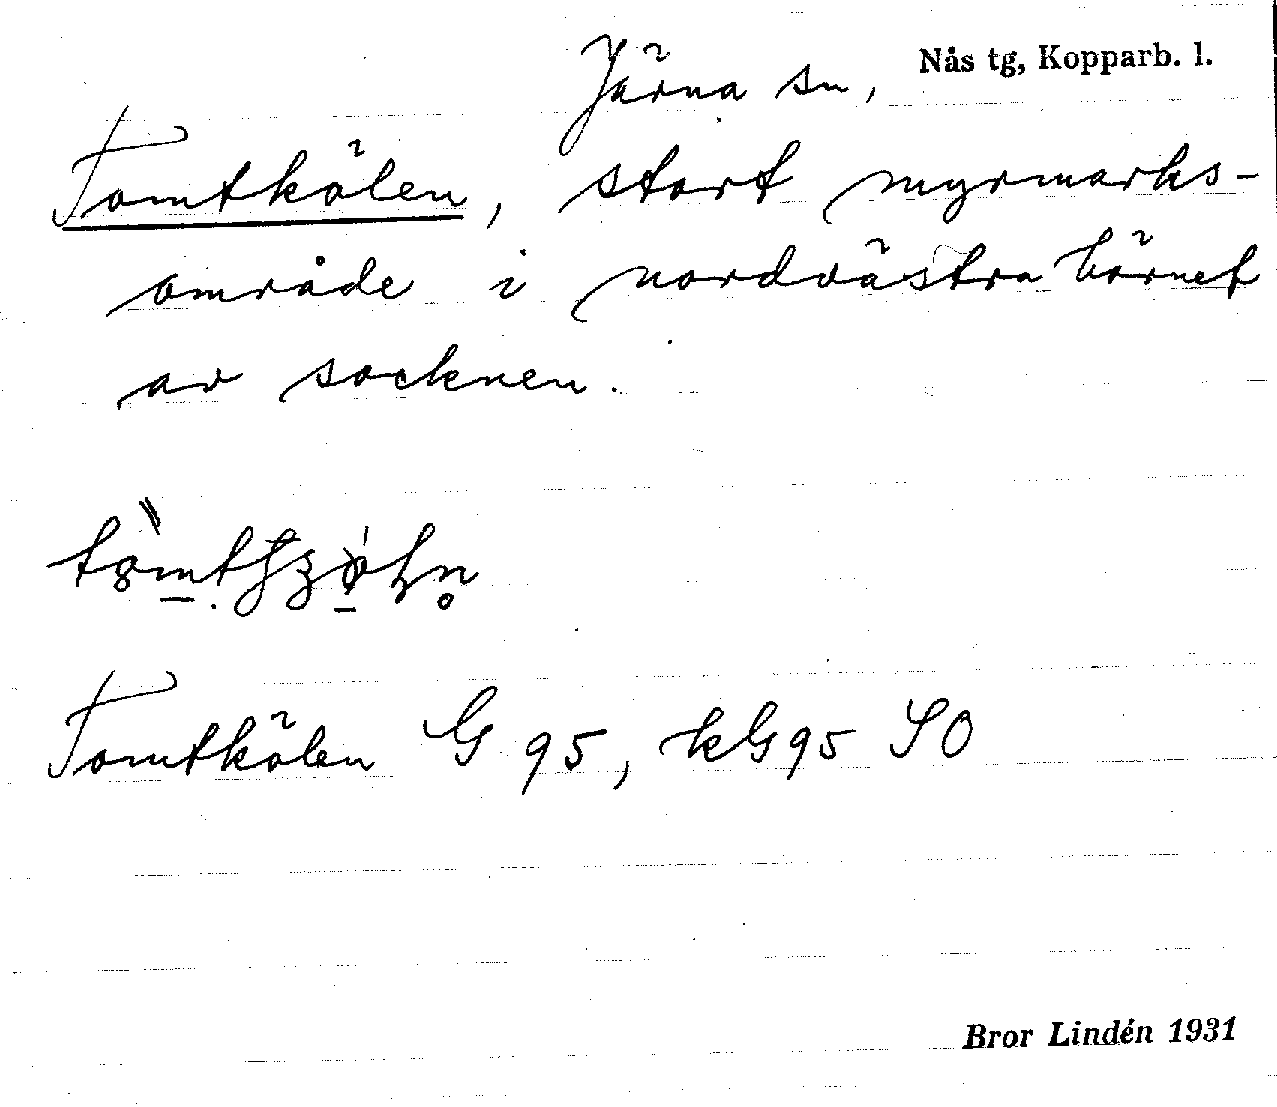 Järna sn, Nås tg, Kopparb. l.
Tomtkölen, stort myrmarks-
område i nordvästra hörnet
av socknen.
Tomtkölen G 95, kG95 SO
Bror Lindén 1931